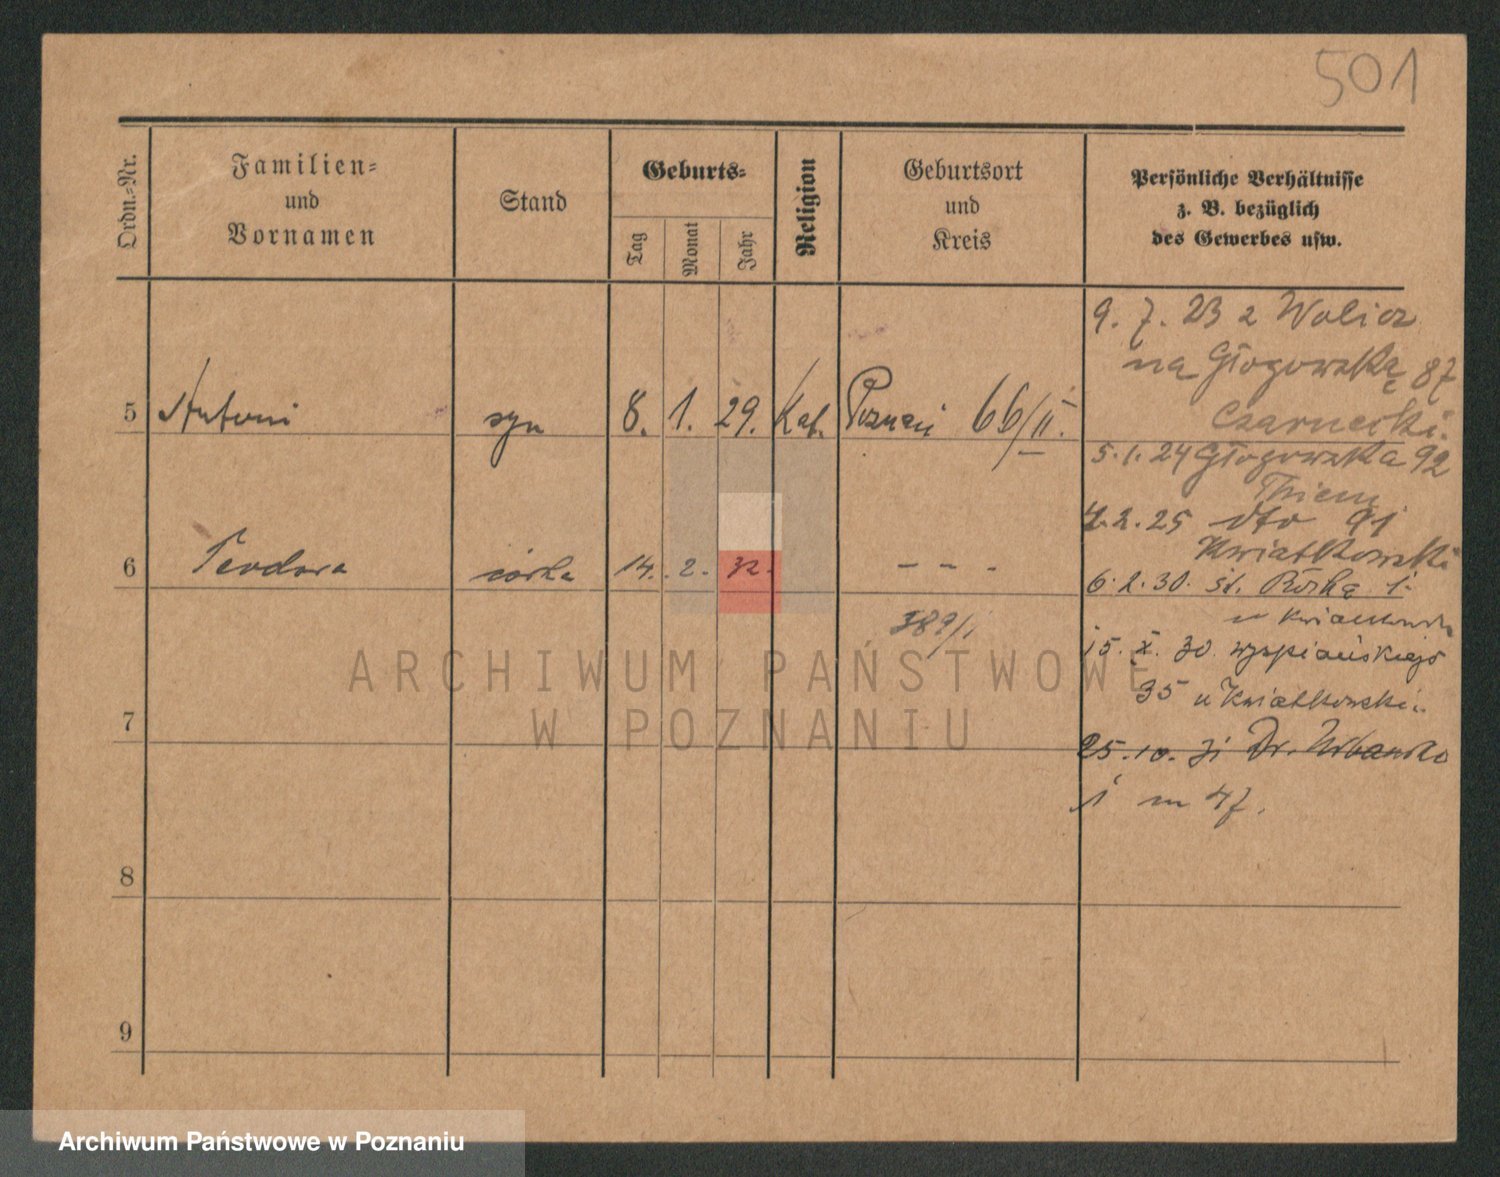 501
Ordn.-Nr.
Familien-
und
Vornamen
Stand
Geburts-
Tag
Monat
Jahr
Religion
Geburtsort
und
Kreis
Persönliche Verhältnisse
z. B. bezüglich
des Gewerbes usw.
9. 7. 23 z Wolicz
na Głogowską 87
Czarnecki.
5 Antoni syn 8. 1. 29. Kat. Poznań 66/II.
5.1.24 Głogowska 92
Thiem
4.2.25 dto 91
Kwiatkowski
6 Teodora córka 14. 2. 32. - - -
6.2.30. Różka 1.
u Kwiatkowski
389/I
15. X. 30. Wyspiańskiego
35 u Kwiatkowski.
7
25.10. 31 Dr. Urbansko
1 m 47.
8
9
ARCHIWUM PAŃSTWOWE
W POZNANIU
Archiwum Państwowe w Poznaniu